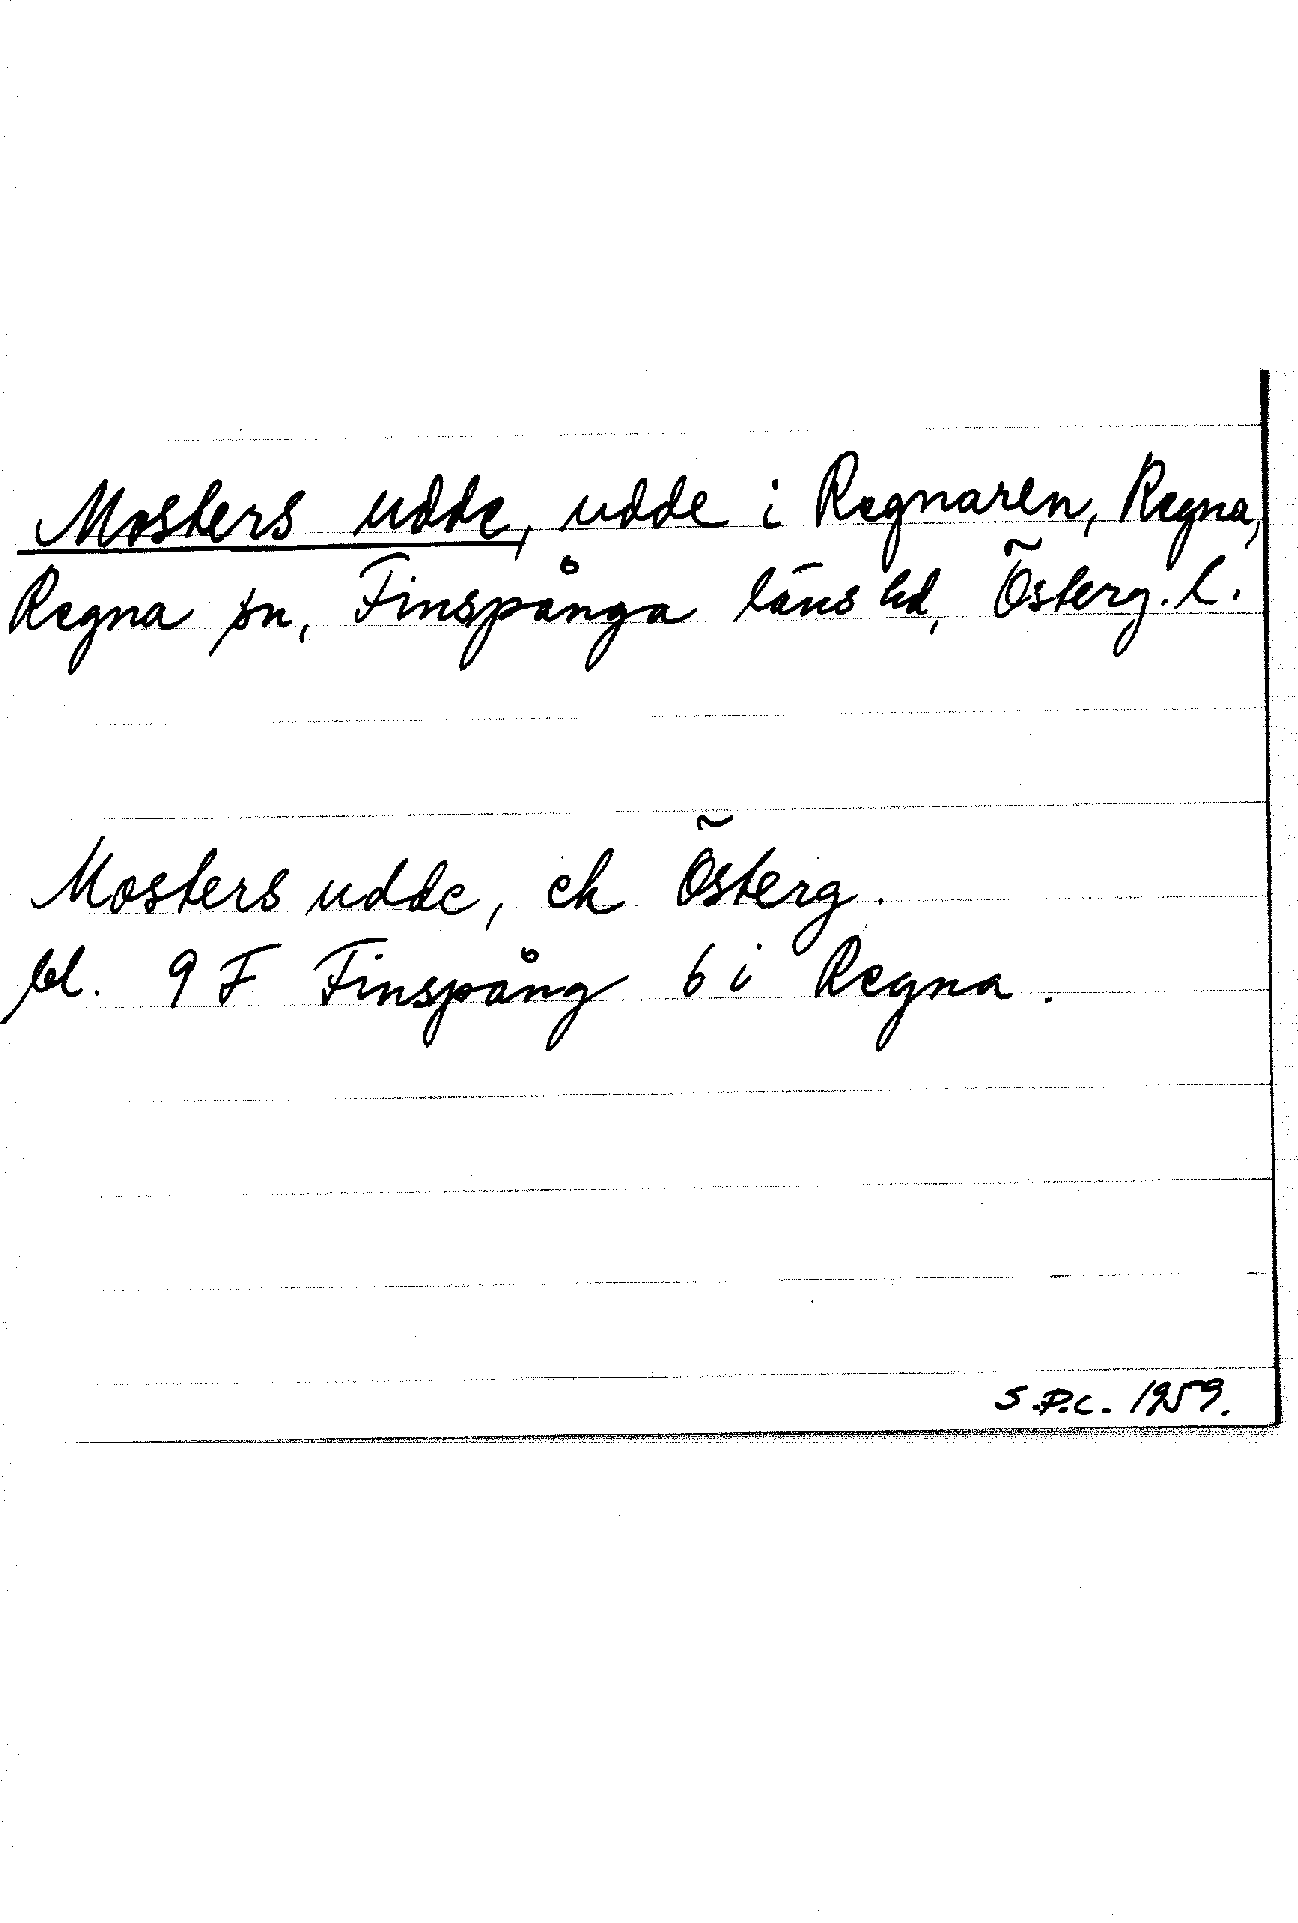 Mosters udde, udde i Regnaren, Regna,
Regna sn, Finspånga läns hd, Österg. l.
Mosters udde, ek Österg.
bl. 9 F Finspång 6 i Regna.
S.P.C. 1959.